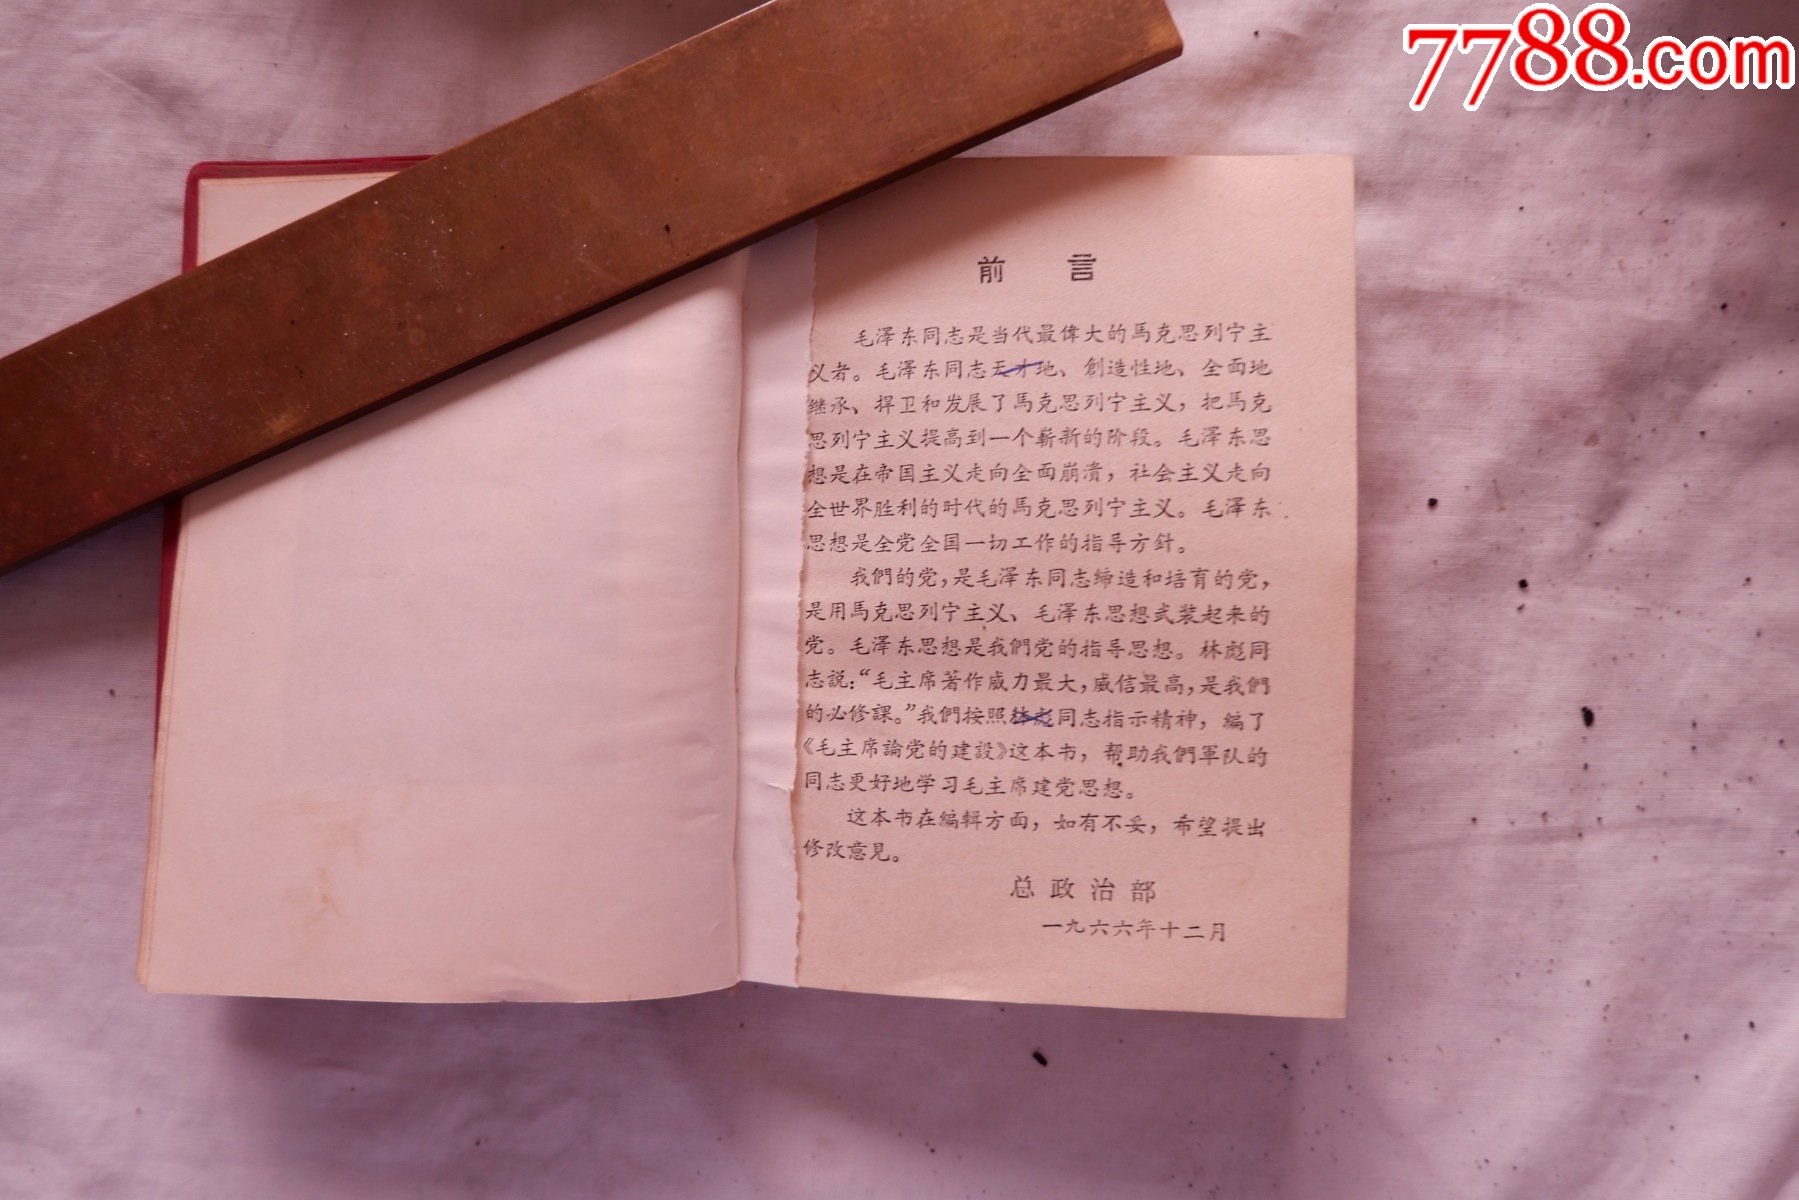 7788.com
前言
毛澤东同志是当代最偉大的馬克思列宁主
义者。毛澤东同志天才地、創造性地、全面地
继承、捍卫和发展了馬克思列宁主义，把馬克
思列宁主义提高到一个崭新的阶段。毛澤东思
想是在帝国主义走向全面崩潰，社会主义走向
全世界胜利的时代的馬克思列宁主义。毛澤东
思想是全党全国一切工作的指导方針。
我們的党，是毛澤东同志缔造和培育的党，
是用馬克思列宁主义、毛澤东思想武装起来的
党。毛澤东思想是我們党的指导思想。林彪同
志説：“毛主席著作威力最大，威信最高，是我們
的必修課。”我們按照林彪同志指示精神，編了
《毛主席論党的建設》这本书，帮助我們軍队的
同志更好地学习毛主席建党思想。
这本书在編輯方面，如有不妥，希望提出
修改意見。
总政治部
一九六六年十二月